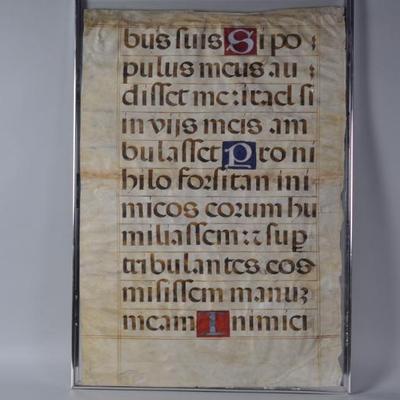 bus suis Si po
pulus meus au
disset me: israel si
in vijs meis am
bulasset Pro ni
hilo forsitan ini
micos eorum hu
miliassem: ⁊ sup̱
tribulantes eos
misissem manuꝫ
meam Inimici